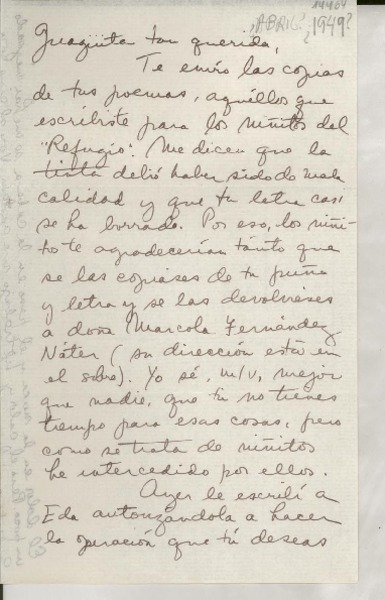 19404
¿ABRIL? ¿1949?
tan querida,
Te envío las copias
de tus poemas, aquéllos que
escribiste para los niñitos del
"Refugio". Me dicen que la
tinta debió haber sido de mala
calidad y que tu letra casi
se ha borrado. Por eso, los niñi-
to te agradecerían tánto que
se las copiases de tu puño
y letra y se las devolvieses
a doña Marcola Fernández
Náter (su dirección está en
el sobre). Yo sé, m/v, mejor
que nadie, que tú no tienes
tiempo para esas cosas, pero
como se trata de niñitos
he intercedido por ellos.
Ayer le escribí a
Eda autorizándola a hacer
la operación que tú deseas